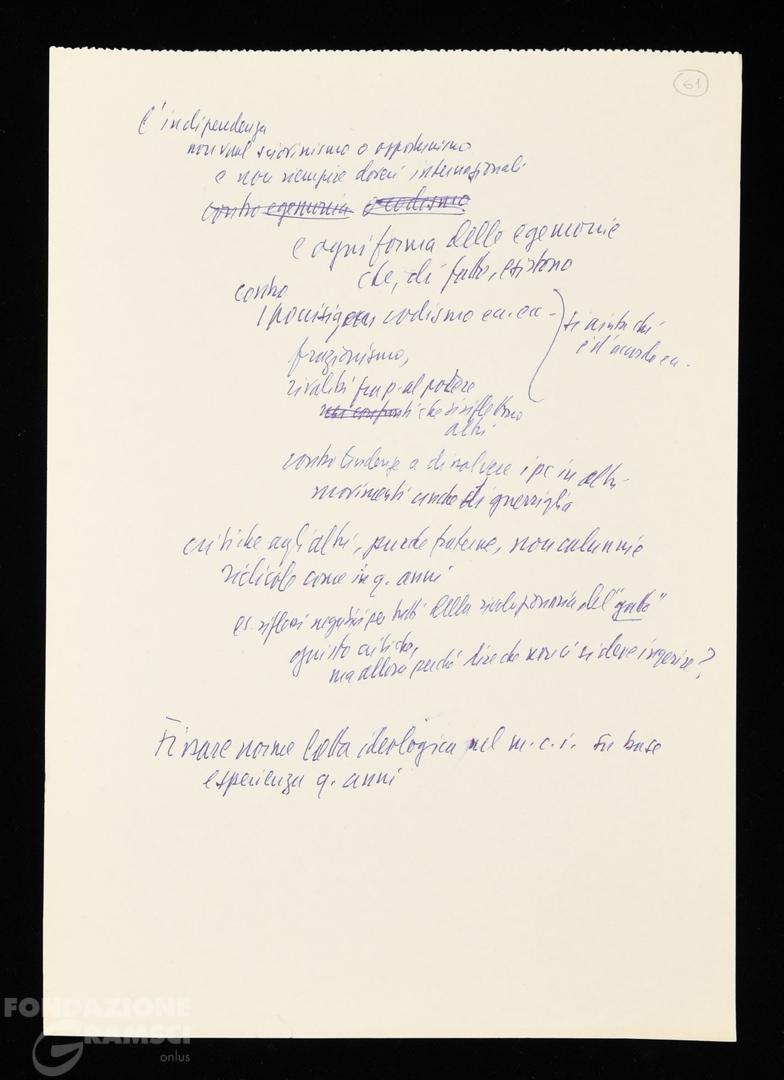 61
L'indipendenza
non vuol sciovinismo o opportunismo
e non riempire doveri internazionali
contro egemonia e codismo
e ogni forma delle egemonie
che, di fatto, esistono
contro
codismo ecc. ecc.
frazionismo,
rivalità fra p. al potere
che si riflettono
altri
si aiuta chi
è d'accordo ecc.
contro tendenze a dissolvere i pc in altri
movimenti anche di guerriglia
critiche agli altri, purché fraterne, non calunnie
ridicole come in q. anni
es. riflessi negativi per tutti della rivoluzionaria del "
o giusto critiche,
ma allora perché dire che non ci si deve ingerire?
Fissare norme lotta ideologica nel m.c.i. su base
esperienza q. anni
FONDAZIONE
GRAMSCI
onlus